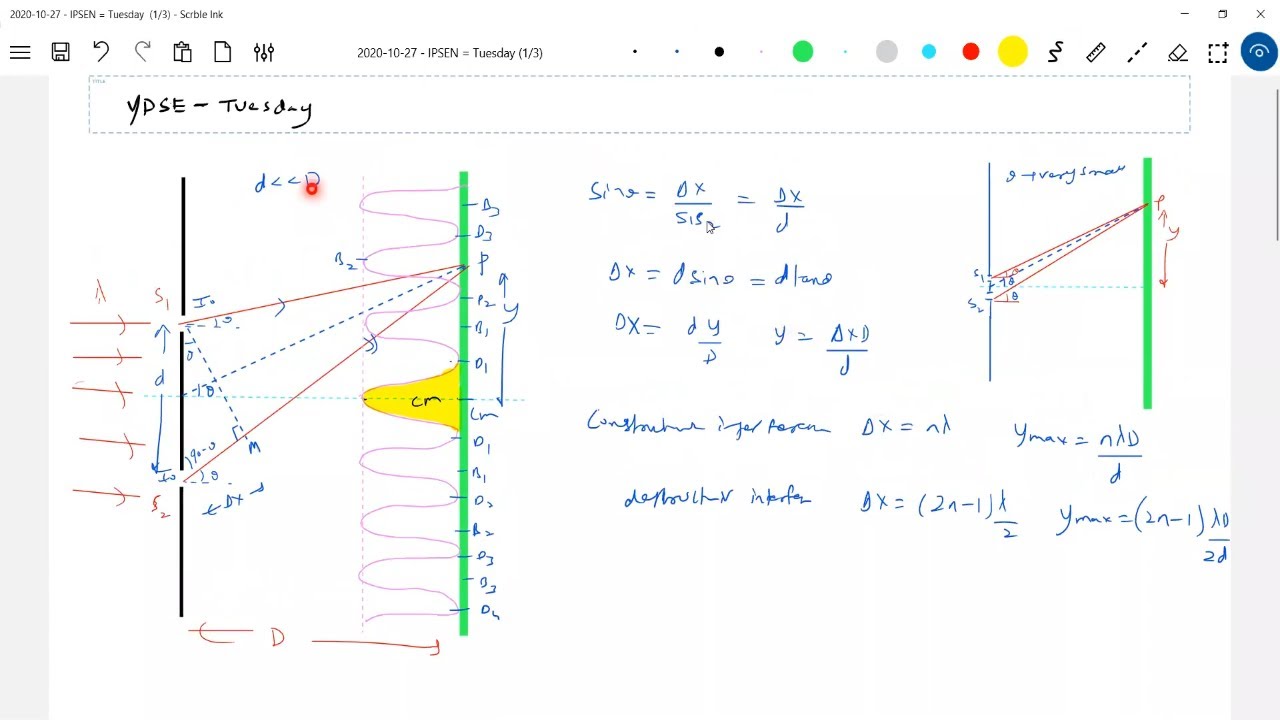 2020-10-27 - IPSEN = Tuesday (1/3) - Scrble Ink
2020-10-27 - IPSEN = Tuesday (1/3)
Title
YDSE - Tuesday
d << D
λ
S1
I0
θ
θ
d
θ
90-θ
M
I0
θ
S2
Δx
D
B2
cm
B3
D3
P
D2
B1
D1
cm
D1
B1
D2
B2
D3
B3
D4
y
Sinθ = Δx/S1S2 = Δx/d
Δx = dsinθ = dtanθ
Δx = dy/D y = ΔxD/d
Constructive interference Δx = nλ ymax = nλD/d
destructive interfer Δx = (2n-1)λ/2 ymax = (2n-1)λD/2d
θ → very small
P
y
S1
θ
θ
S2
θ